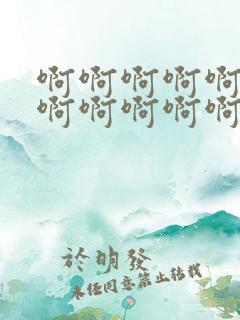 啊啊啊啊啊
啊啊啊啊啊
於明發
未经同意禁止转载